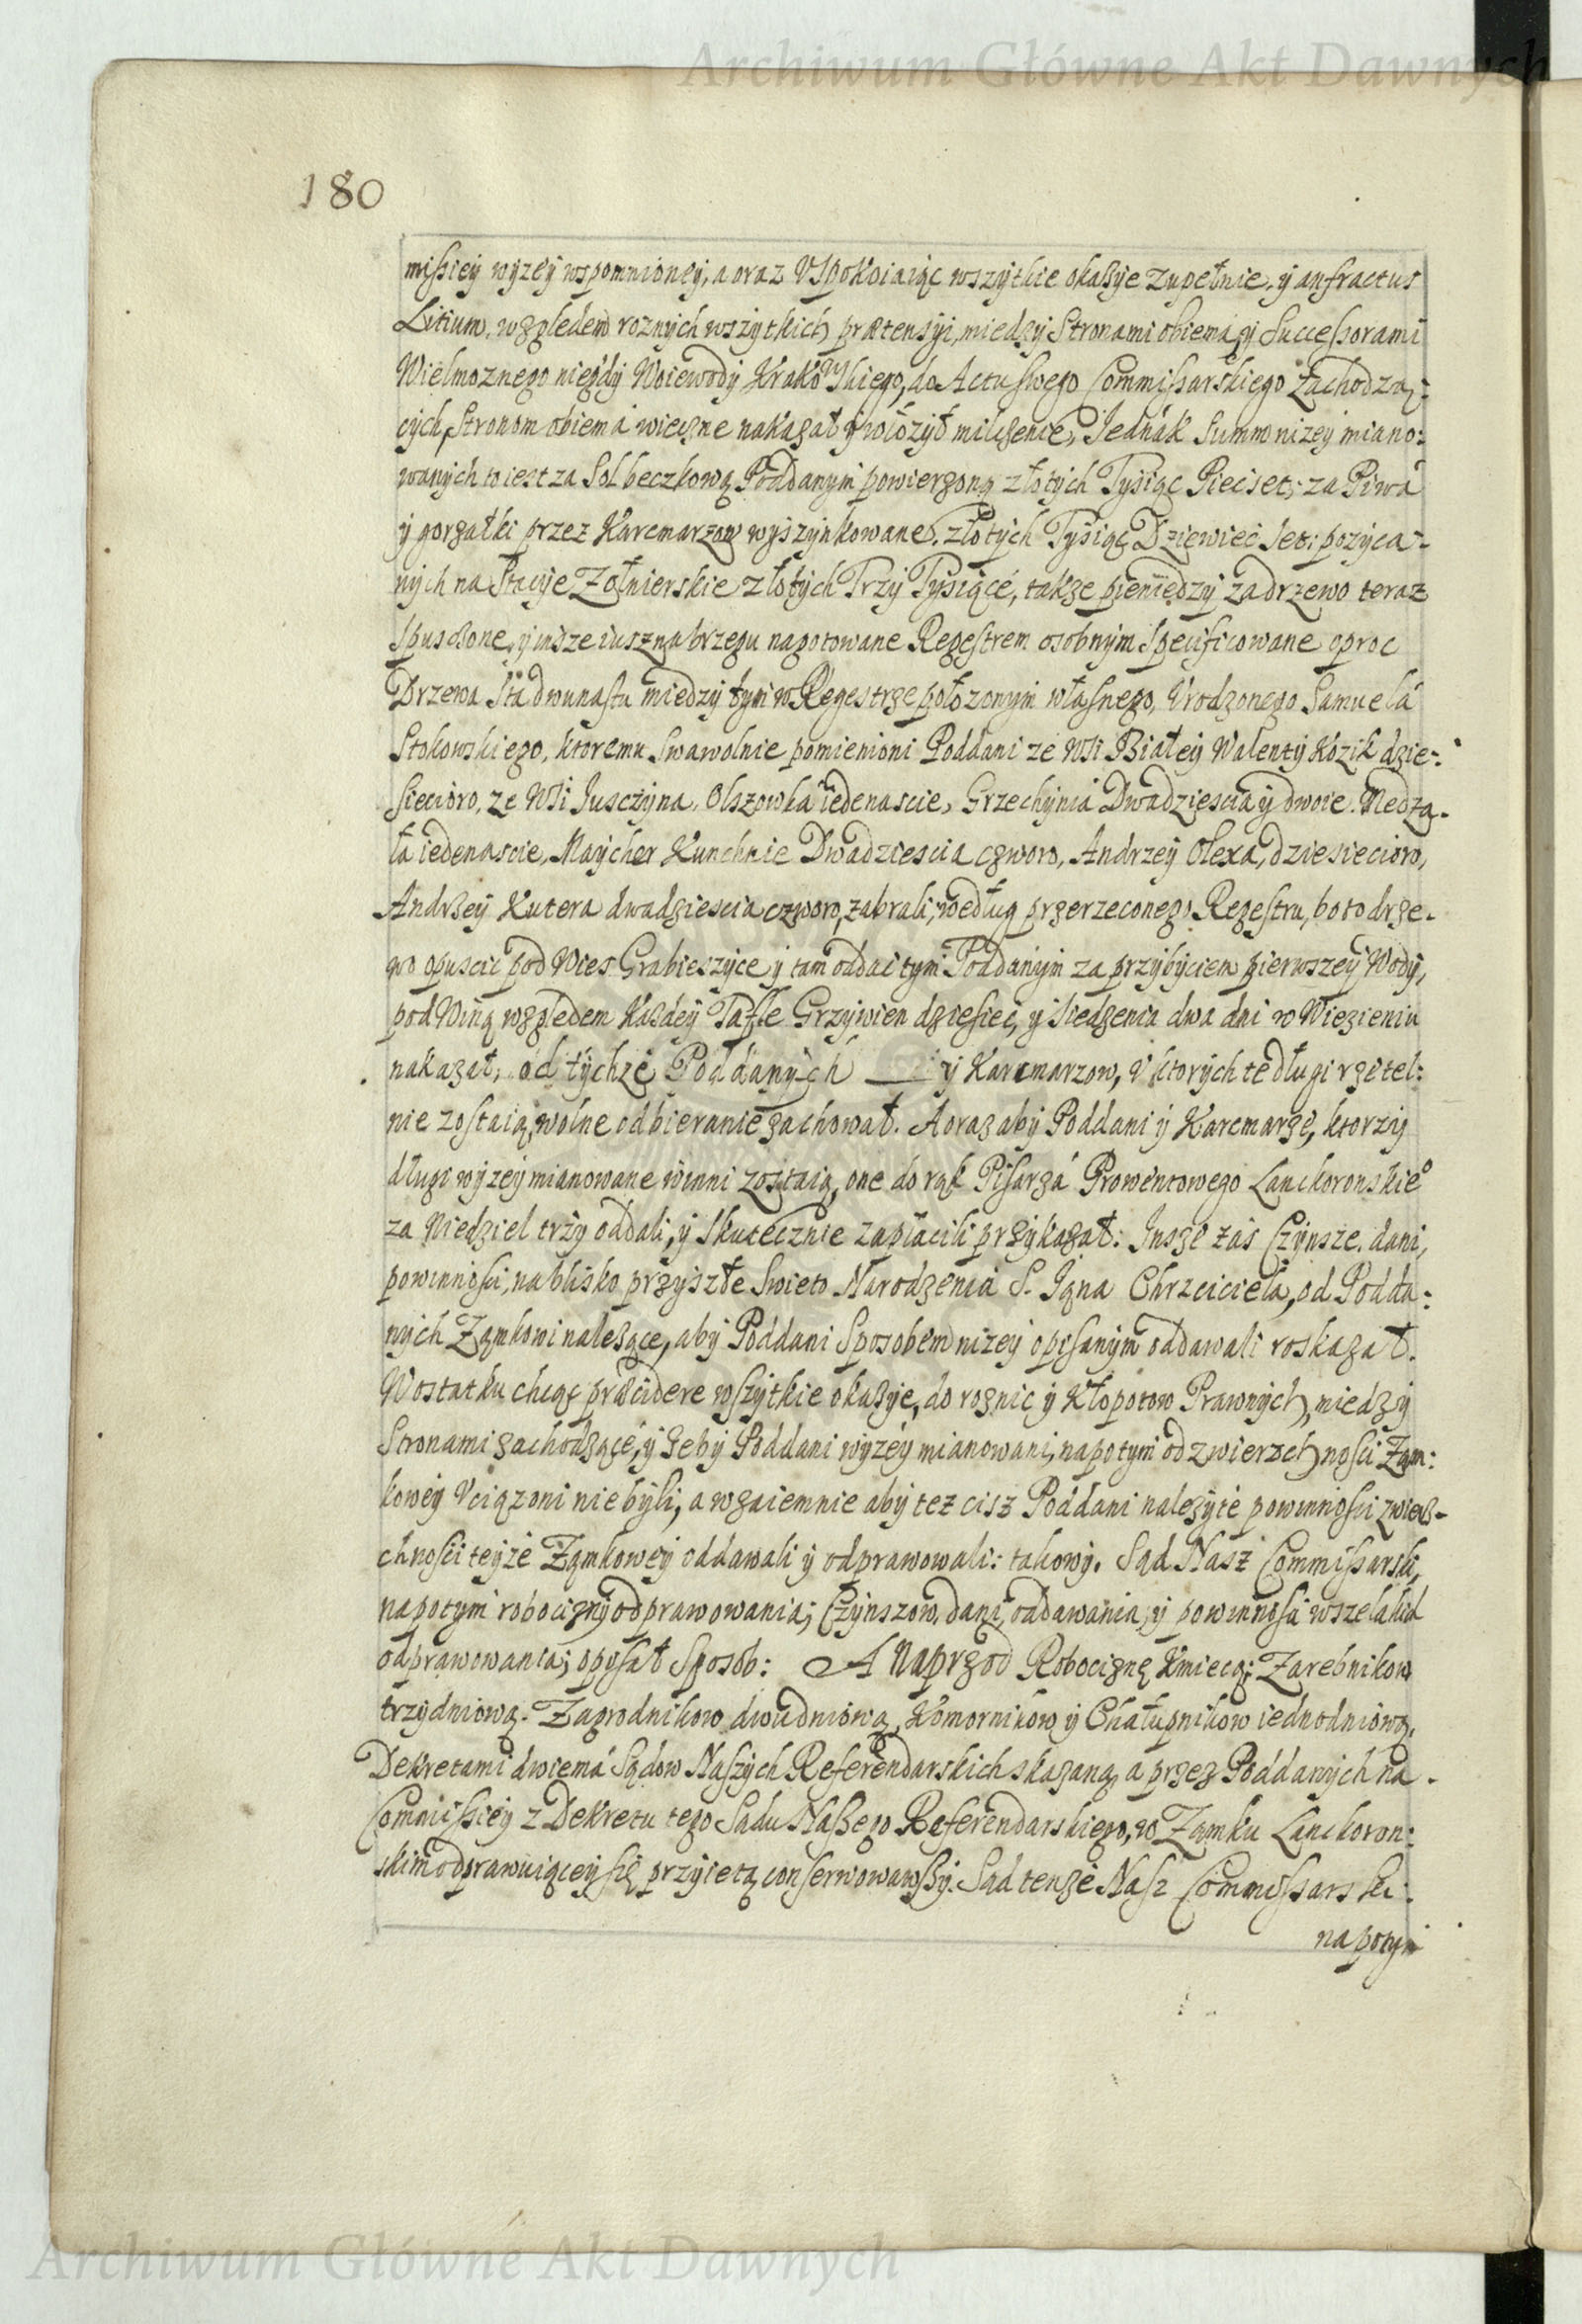 Archiwum Główne Akt Dawnych
180
missiey wyzey wspomnioney, a oraz Vspokoiaiąc wszytkie okaßye zupełnie, y anfractus
Litium, względem roznych wszytkich prætensyi, miedzy Stronami obiema, y Successorami
Wielmoznego niegdy Woiewody Krakowskiego, do Actu swego Commissarskiego zachodzą:
cych, Stronom obiema wieczne nakazał y włożył milczenie, Jednak Summ nizey miano:
wanych to iest za Sol beczkową Poddanym powierzoną złotych Tysiąc Piecset; za Piwa
y gorzałki przez Karcmarzow wyszynkowane, złotych Tysiąc Dziewiec set: pozyca:
nych na Stacye Zołnierskie złotych Trzy Tysiące, takze pieniedzy za drzewo teraz
spusczone, y insze iusz na brzegu nagotowane Regestrem osobnym specificowane oproc
Drzewa Sta dwunastu miedzy tym w Regestrze położonym własnego, Vrodzonego Samuela
Stokowskiego, ktoremu swawolnie pomienioni Poddani ze Wsi Białey Walenty Kozik dzie:
siecioro, ze Wsi Jusczyna, Olszowka iedenascie, Grzechynia Dwadziescia y dwoie. Medza-
ła iedenascie, Maycher Kunchnie Dwadziescia czworo, Andrzey Olexa, dziesiecioro,
Andrzey Kutera dwadziescia czworo, zabrali, według przerzeconego Regestru, bo to drze-
wo opuscic pod Wies Grabieszyce y tam oddac tym Poddanym za przybyciem pierwszey Wody,
pod Winą względem Kazdey Tafle Grzywien dziesiec, y siedzenia dwa dni w Wiezieniu
nakazał, od tychze Poddanych — y Karcmarzow, v ktorych te długi rzetel:
nie zostaią, wolne odbieranie zachował. A oraz aby Poddani y Karcmarze, ktorzy
długi wyzey mianowane winni zostaią, one do rąk Pisarza Prowentowego Lanckoronskieo
za Niedziel trzy oddali, y skutecznie zapłacili przykazał: Insze zas Czynsze, dani,
powinnosci, na blisko przyszłe Swieto Narodzenia S. Jąna Chrzciciela, od Podda:
nych Ząmkowi nalezące, aby Poddani Sposobem nizey opisanym oddawali roskazał.
W ostatku chcąc præcidere wszytkie okazye, do roznic y kłopotow Prawnych, miedzy
Stronami zachodzące, y zeby Poddani wyzey mianowani, napotym od zwierzchnosci Zam:
kowey Vciązoni nie byli, a wzaiemnie aby tez cisz Poddani nalezyte powinnosci zwierz-
chnosci teyze Ząmkowey oddawali y odprawowali: takowy. Sąd Nasz Commissarski,
napotym robocizny odprawowania; Czynszow, dani, oddawania, y powinnosci wszelakich
odprawowania; opysał sposob: A naprzod Robociznę Kmiecą: Zarebnikow
trzydniową. Zagrodnikow dwudniową, Komornikow y Chałupnikow iednodniową,
Dekretami dwiema Sądow Naszych Referendarskich skazaną, a przez Poddanych na
Commissiey z Dekretu tego Sadu Naszego Referendarskiego, w Ząmku Lanckoron:
skim odprawuiącey się przyietą conserwowawszy. Sąd tenze Nasz Commissarski
napotym
Archiwum Główne Akt Dawnych